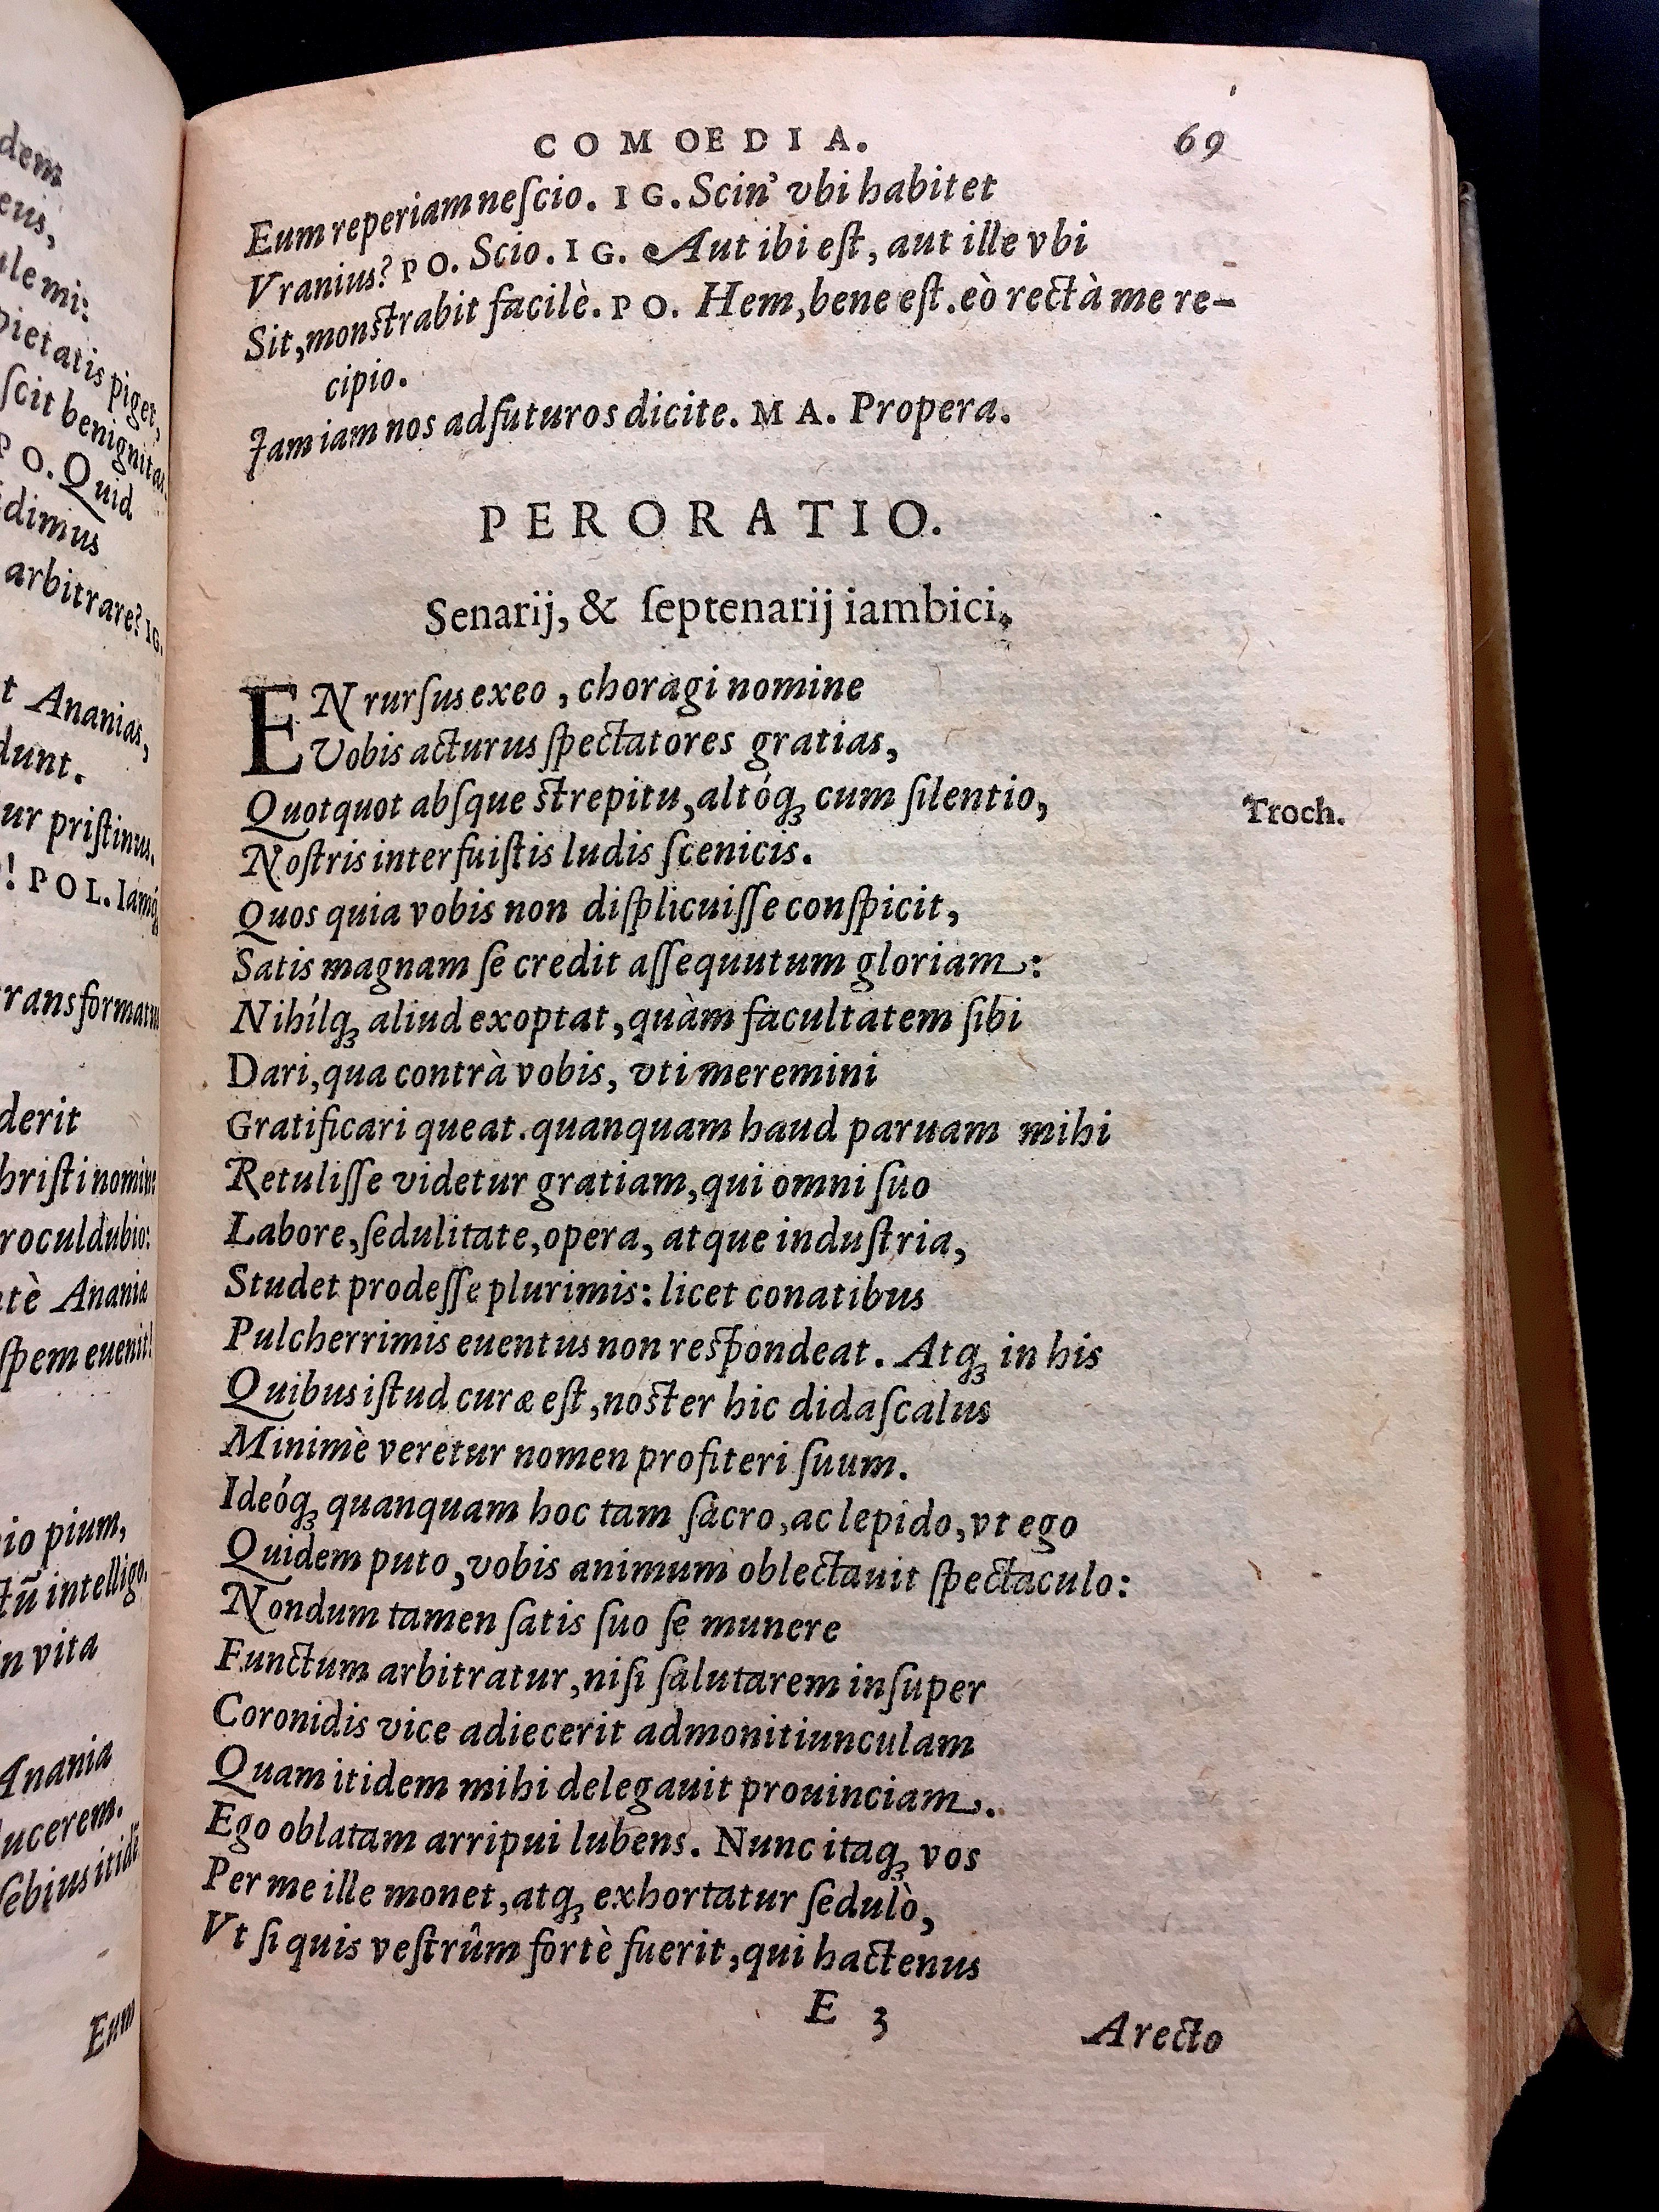 dem
eus,
ule mi:
pietatis piget,
ſcit benignitas
PO. Quid
dimus
arbitrare? IG.
t Ananias,
dunt.
ur priſtinus.
! POL. Iamq́ꝫ
transformatus
derit
hriſti nomine
roculdubio:
tè Ananiæ
ſpem euenit!
io pium,
tũ intelligo.
n vita
Anania
lucerem.
ſebius itidẽ
Eum
COMOEDIA. 69
Eum reperiam neſcio. IG. Scin' vbi habitet
Vranius? PO. Scio. IG. Aut ibi eſt, aut ille vbi
Sit, monſtrabit facilè. PO. Hem, bene eſt. eò rectà me re-
cipio.
Jam iam nos adfuturos dicite. MA. Propera.
PERORATIO.
Senarij, & ſeptenarij iambici.
EN rurſus exeo, choragi nomine
Vobis acturus ſpectatores gratias,
Quotquot abſque ſtrepitu, altóqꝫ cum ſilentio, Troch.
Noſtris interfuiſtis ludis ſcenicis.
Quos quia vobis non diſplicuiſſe conſpicit,
Satis magnam ſe credit aſſequutum gloriam:
Nihílqꝫ aliud exoptat, quàm facultatem ſibi
Dari, qua contrà vobis, vti meremini
Gratificari queat. quanquam haud paruam mihi
Retuliſſe videtur gratiam, qui omni ſuo
Labore, ſedulitate, opera, atque induſtria,
Studet prodeſſe plurimis: licet conatibus
Pulcherrimis euentus non reſpondeat. Atqꝫ in his
Quibus iſtud curæ eſt, noſter hic didaſcalus
Minimè veretur nomen profiteri ſuum.
Ideóqꝫ quanquam hoc tam ſacro, ac lepido, vt ego
Quidem puto, vobis animum oblectauit ſpectaculo:
Nondum tamen ſatis ſuo ſe munere
Functum arbitratur, niſi ſalutarem inſuper
Coronidis vice adiecerit admonitiunculam
Quam itidem mihi delegauit prouinciam.
Ego oblatam arripui lubens. Nunc itaqꝫ vos
Per me ille monet, atqꝫ exhortatur ſedulò,
Vt ſi quis veſtrûm fortè fuerit, qui hactenus
E 3 A recto